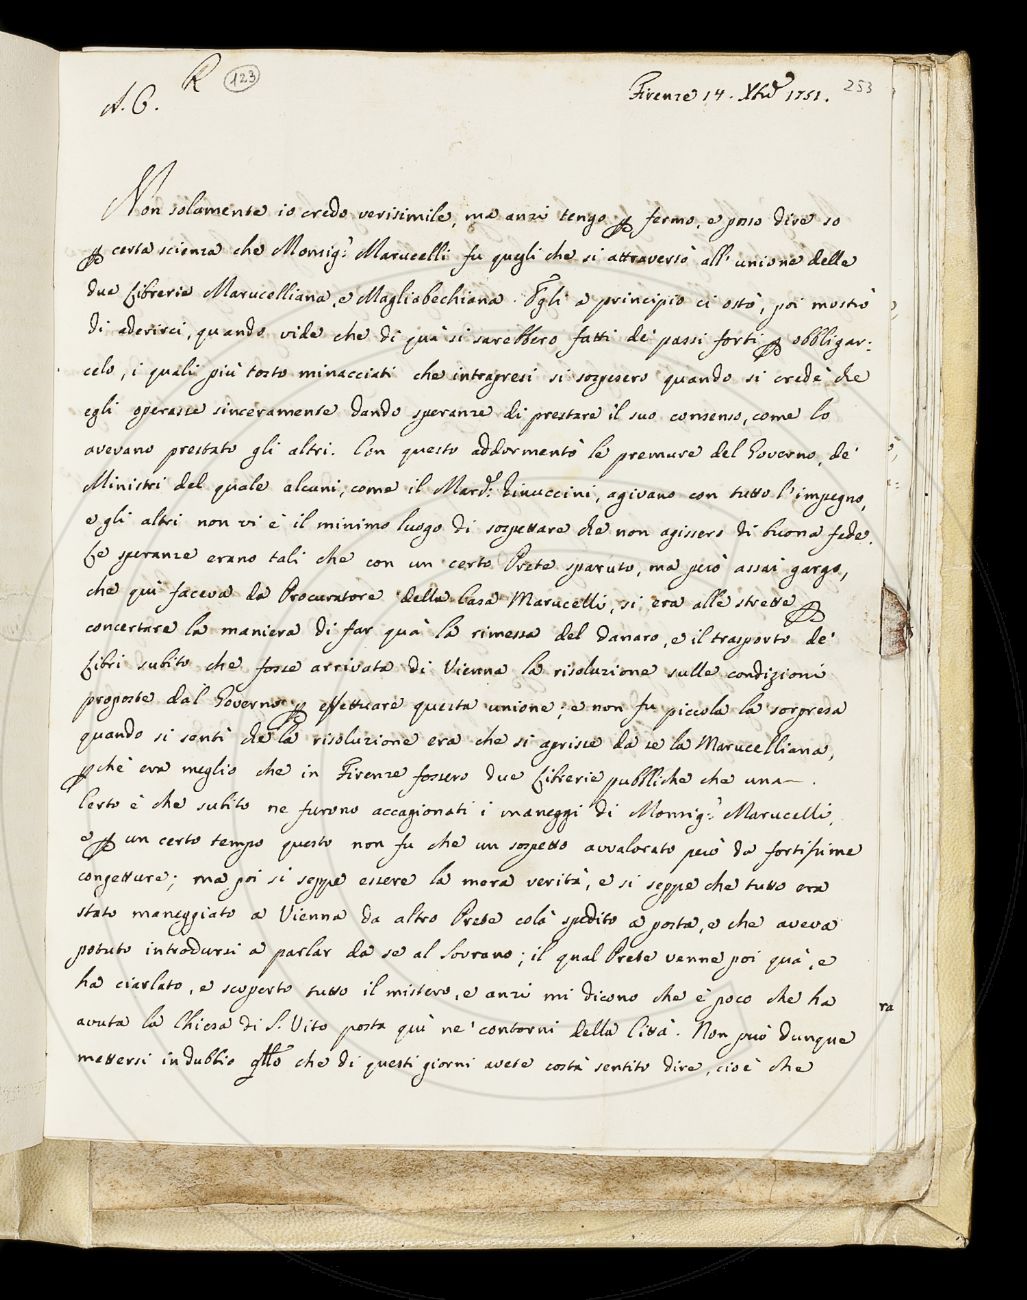 R 123
A. C. Firenze 14. Xbre 1751. 253
Non solamente io credo verisimile, ma anzi tengo p fermo, e posso dire so
p certa scienza che Monsigr Marucelli fu quegli che si attraversò all'unione delle
due Librerie Marucelliana, e Magliabechiana. Egli a principio ci ostò, poi mostrò
di aderirci, quando vide che di quà si sarebbero fatti de' passi forti p obbligar:
celo, i quali più tosto minacciati che intrapresi si sospesero quando si credè che
egli operasse sinceramente dando speranze di prestare il suo consenso, come lo
avevano prestato gli altri. Con questo addormentò le premure del Governo, de'
Ministri del quale alcuni, come il Marche Rinuccini, agivano con tutto l'impegno,
e gli altri non vi è il minimo luogo di sospettare che non agissero di buona fede.
Le speranze erano tali che con un certo Prete sparuto, ma però assai gargo,
che quì faceva da Procuratore della Casa Marucelli, si era alle strette p
concertare la maniera di far quà la rimessa del danaro, e il trasporto de'
Libri subito che fosse arrivata di Vienna la risoluzione sulle condizioni
proposte dal Governo p effettuare questa unione; e non fu piccola la sorpresa
quando si sentì che la risoluzione era che si aprisse da se la Marucelliana,
pchè era meglio che in Firenze fossero due Librerie pubbliche che una.
Certo è che subito ne furono accagionati i maneggi di Monsigr Marucelli,
e p un certo tempo questo non fu che un sospetto avvalorato però da fortissime
congetture; ma poi si seppe essere la mera verità, e si seppe che tutto era
stato maneggiato a Vienna da altro Prete colà spedito a posta, e che aveva
potuto introdursi a parlar da se al Sovrano; il qual Prete venne poi quà, e
ha ciarlato, e scoperto tutto il mistero, e anzi mi dicono che è poco che ha
avuta la Chiesa di S. Vito posta quì ne' contorni della Città. Non può dunque
mettersi in dubbio qllo che di questi giorni avete costà sentito dire, cioè che
ra